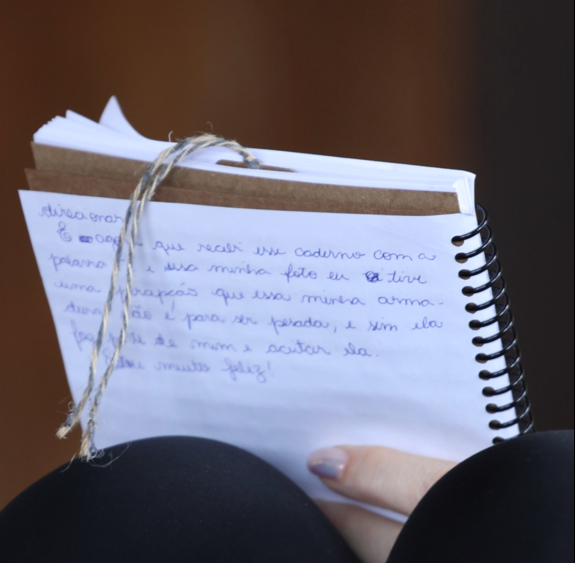 direcionar
E que recebi esse caderno com a
palavra e essa minha foto eu tive
uma que essa minha arma-
não é para ser pesada, e sim ela
faz de mim e aceitar ela.
muito feliz!